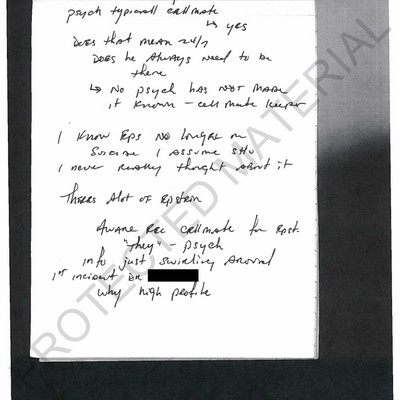 psych typicall cellmate
↳ yes
Does that mean 24/7
Does he always need to be
there
↳ No psych has not made
it known - cell mate
I know Eps no longer on
suicide I assume SHU
I never really thought about it
Theres alot of Epstein
Aware Rec cellmate for Epst.
"they" - psych
info just swirling around
1st incident DR
why high profile
PROTECTED MATERIAL